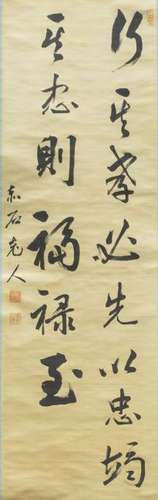 行其孝必先以忠竭
其忠則福禄至
石老人